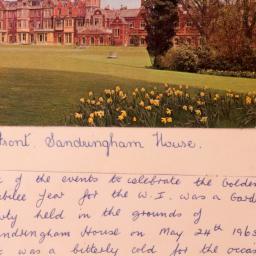 Front. Sandringham House.
of the events to celebrate the Golden
Jubilee Year for the W.I. was a Gard
held in the grounds of
Sandringham House on May 24th 1965
was a bitterly cold for the occas